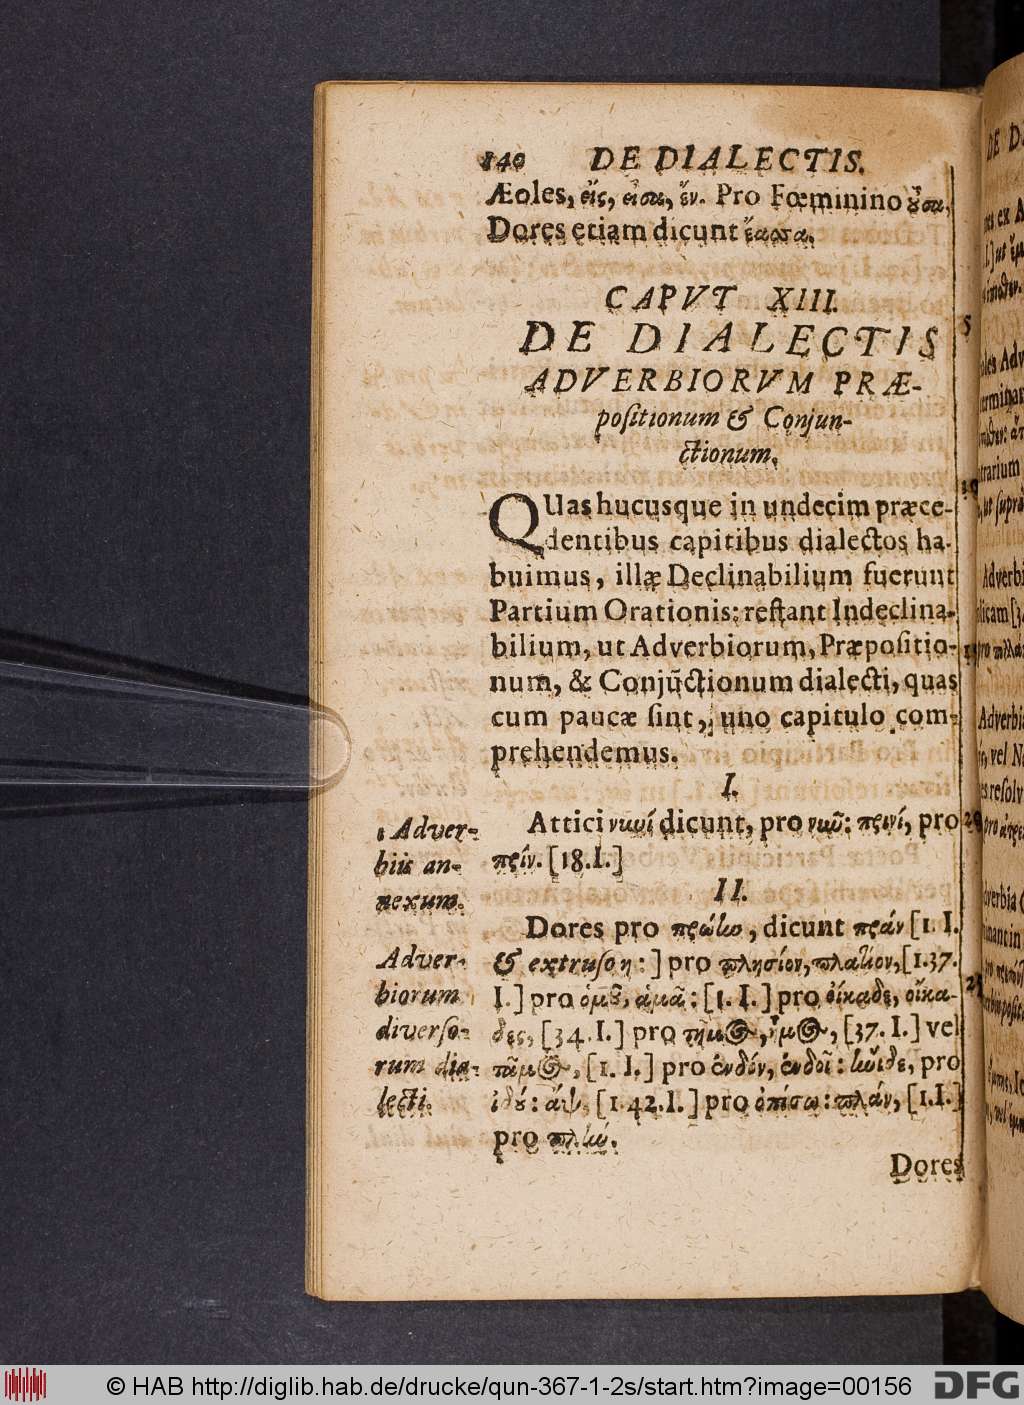 140 DE DIALECTIS.
Æoles, εἴς, εἶσα, ἕν. Pro Fœminino οὖσα,
Dores etiam dicunt ἔασσα.
CAPVT XIII.
DE DIALECTIS
ADVERBIORVM PRÆ-
poſitionum & Conjun-
ctionum.
QUas hucusque in undecim præce-
dentibus capitibus dialectos ha-
buimus, illæ Declinabilium fuerunt
Partium Orationis: reſtant Indeclina-
bilium, ut Adverbiorum, Præpoſitio-
num, & Conjũctionum dialecti, quas
cum paucæ ſint, uno capitulo com-
prehendemus.
I.
Adver-
biis an-
nexum.
Attici νυνί dicunt, pro νῦν: πρινί, pro
πρίν. [18.I.]
II.
Adver-
biorum
diverſo-
rum dia-
lecti.
Dores pro πρώην, dicunt πράν [1. I.
& extruſo η:] pro πλησίον, πλατίον, [1.37.
I.] pro ὁμοῦ, ἁμᾶ: [1. I.] pro οἴκαδε, οἴκα-
δες, [34. I.] pro τῆμος, ἦμος, [37. I.] vel
τᾶμος, [1. I.] pro ἔνδον, ἐνδοῖ: ἠνίδε, pro
ἰδού: ἄψ, [1 42.I.] pro ὀπίσω: πλάν, [1.I.]
pro πλήν.
Dores
5
10
15
20
25
© HAB http://diglib.hab.de/drucke/qun-367-1-2s/start.htm?image=00156
DFG